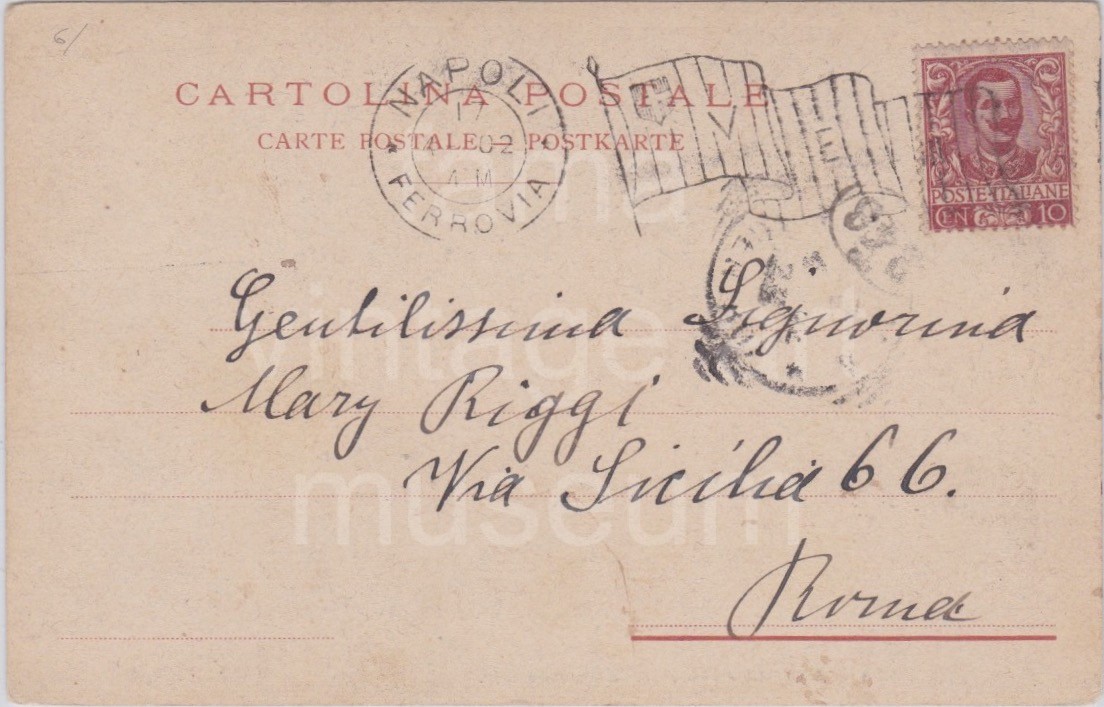 6/
CARTOLINA POSTALE
CARTE POSTALE — POSTKARTE
NAPOLI
17
02
4 M
FERROVIA
V E
POSTE ITALIANE
CEN 10
Gentilissima Signorina
Mary Riggi
Via Sicilia 66.
Roma
vintage
museum